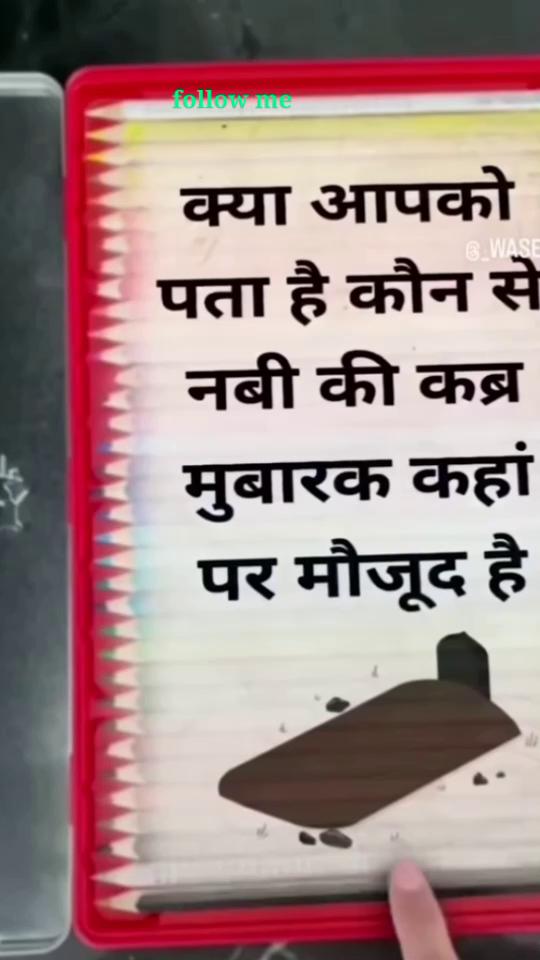 follow me
क्या आपको
@_WASE
पता है कौन से
नबी की कब्र
मुबारक कहां
पर मौजूद है